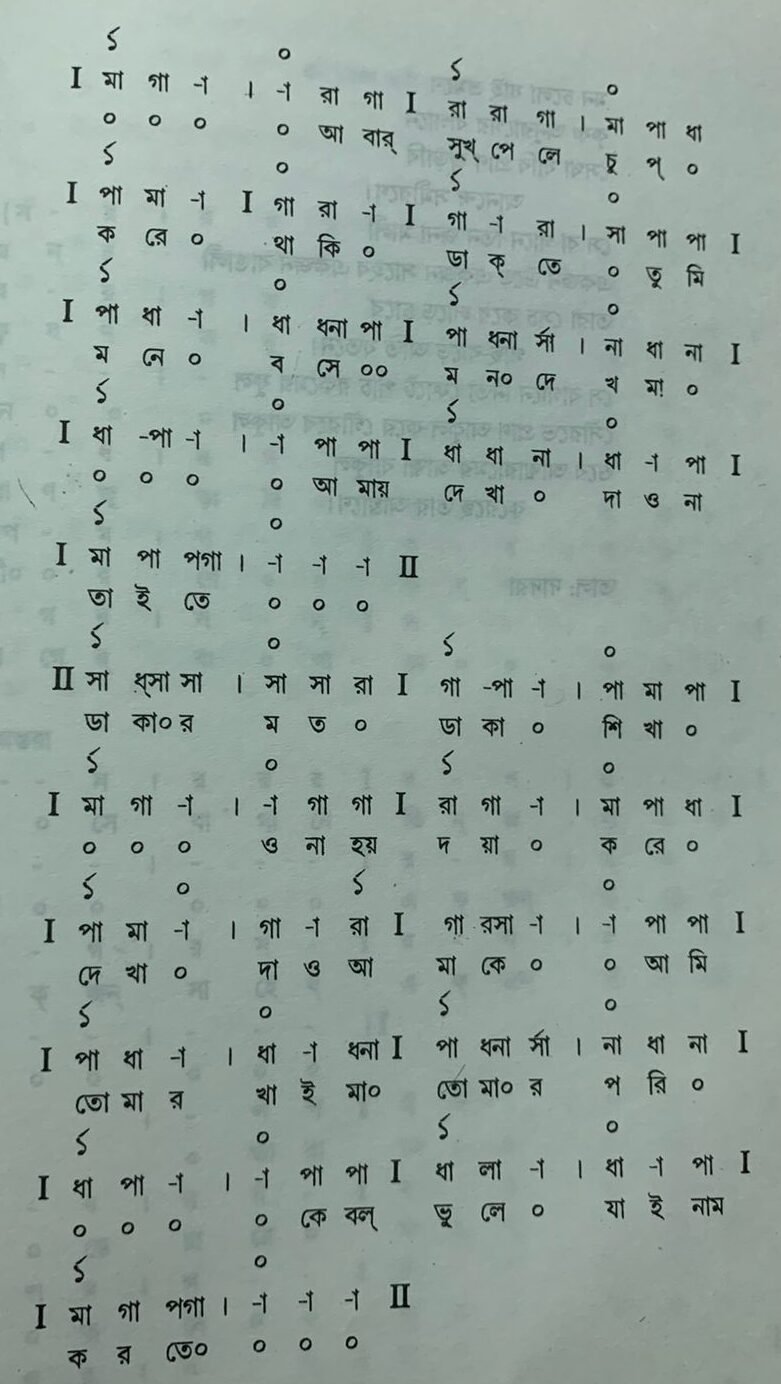 ১ ০ ১ ০
I মা গা -া । -া রা গা I রা রা গা । মা পা ধা
০ ০ ০ ০ আ বার্ সুখ্ পে লে চু প্ ০
১ ০ ১ ০
I পা মা -া I গা রা -া I গা -া রা । সা পা পা I
ক রে ০ থা কি ০ ডা ক্ তে ০ তু মি
১ ০ ১ ০
I পা ধা -া । ধা ধনা পা I পা ধনা র্সা । না ধা না I
ম নে ০ ব সে ০০ ম ন০ দে খ মা ০
১ ০ ১ ০
I ধা -পা -া । -া পা পা I ধা ধা না । ধা -া পা I
০ ০ ০ ০ আ মায় দে খা ০ দা ও না
১ ০
I মা পা পগা । -া -া -া II
তা ই তে ০ ০ ০
১ ০ ১ ০
II সা ধ্সা সা । সা সা রা I গা -পা -া । পা মা পা I
ডা কা০ র ম ত ০ ডা কা ০ শি খা ০
১ ০ ১ ০
I মা গা -া । -া গা গা I রা গা -া । মা পা ধা I
০ ০ ০ ও না হয় দ য়া ০ ক রে ০
১ ০ ১ ০
I পা মা -া । গা -া রা I গা রসা -া । -া পা পা I
দে খা ০ দা ও আ মা কে ০ ০ আ মি
১ ০ ১ ০
I পা ধা -া । ধা -া ধনা I পা ধনা র্সা । না ধা না I
তো মা র খা ই মা০ তো মা০ র প রি ০
১ ০ ১ ০
I ধা পা -া । -া পা পা I ধা লা -া । ধা -া পা I
০ ০ ০ ০ কে বল্ ভু লে ০ যা ই নাম
১ ০
I মা গা পগা । -া -া -া II
ক র তে০ ০ ০ ০